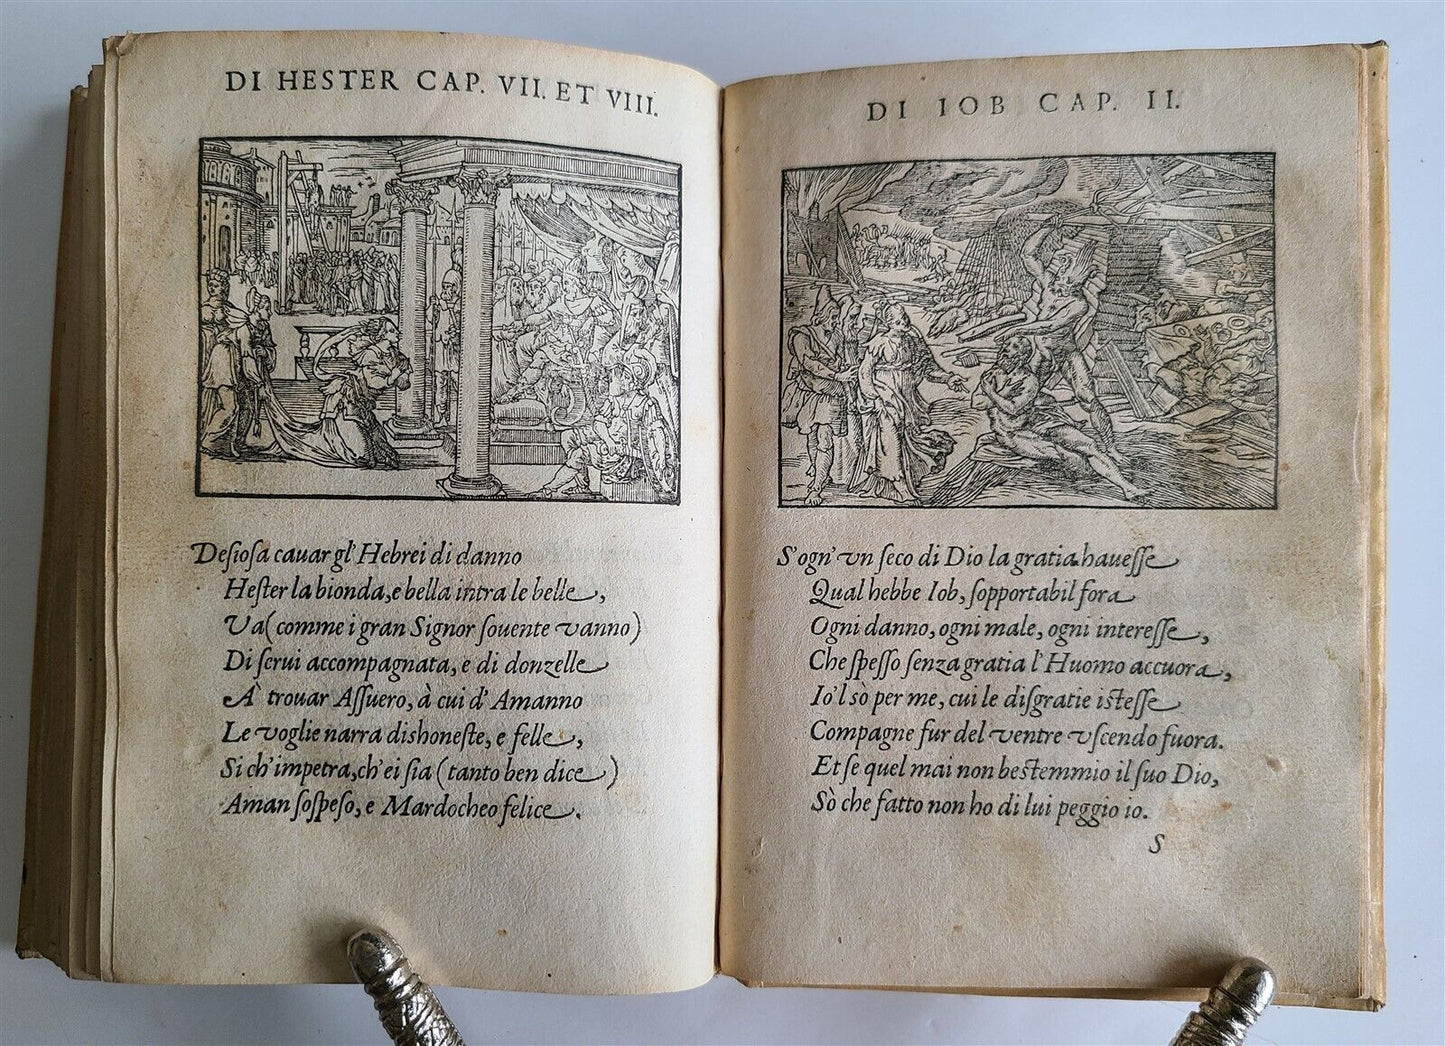 DI HESTER CAP. VII. ET VIII.
Desiosa cauar gl' Hebrei di danno
Hester la bionda, e bella intra le belle,
Va (comme i gran Signor souente vanno)
Di serui accompagnata, e di donzelle
À trouar Assuero, à cui d' Amanno
Le voglie narra dishoneste, e felle,
Si ch' impetra, ch' ei sia (tanto ben dice)
Aman sospeso, e Mardocheo felice.
DI IOB CAP. II.
S' ogn' vn seco di Dio la gratia hauesse
Qual hebbe Iob, sopportabil fora
Ogni danno, ogni male, ogni interesse,
Che spesso senza gratia l' Huomo accuora,
Io 'l sò per me, cui le disgratie istesse
Compagne fur del ventre vscendo fuora.
Et se quel mai non bestemmio il suo Dio,
Sò che fatto non ho di lui peggio io.
S